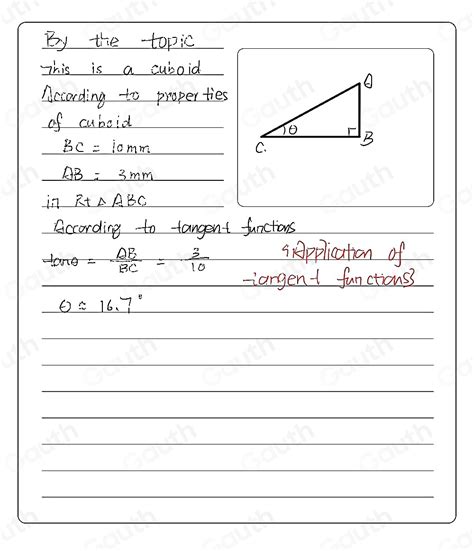 By the topic
This is a cuboid
According to properties
of cuboid
BC = 10mm
AB = 3mm
in Rt △ ABC
According to tangent functions
tanθ = AB/BC = 3/10
θ ≈ 16.7°
A
θ
C.
B
{Application of
tangent functions}
Gauth